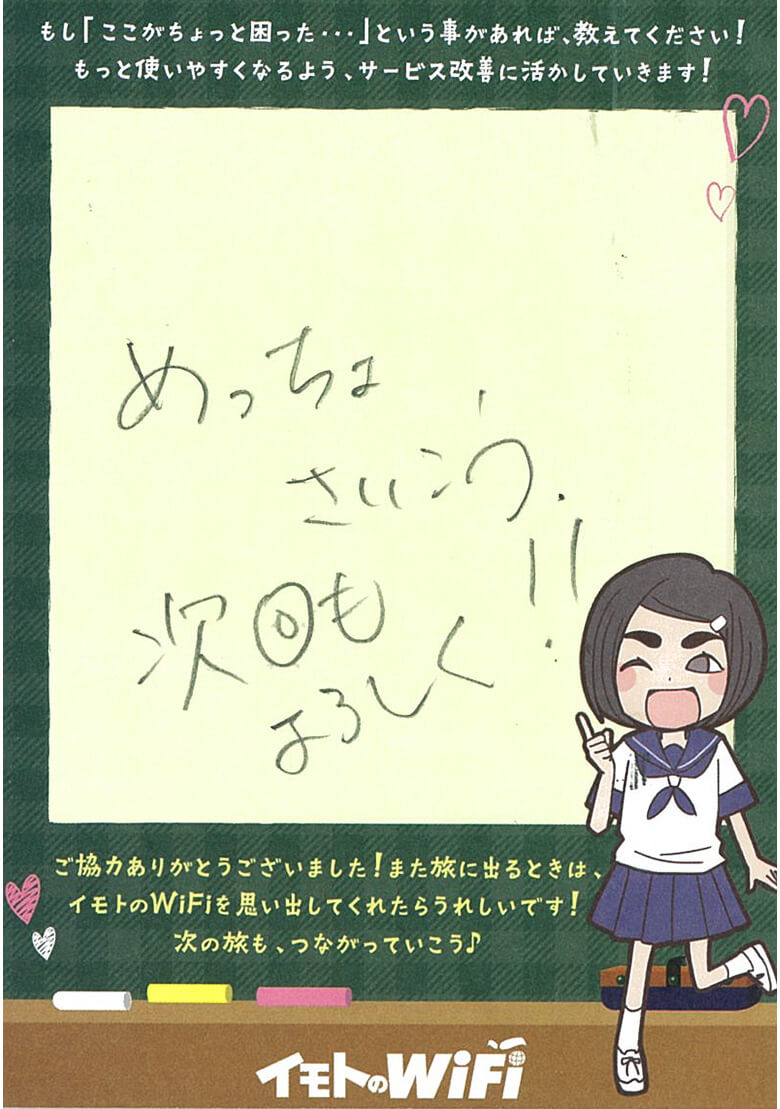 もし「ここがちょっと困った・・・」という事があれば、教えてください！
もっと使いやすくなるよう、サービス改善に活かしていきます！
めっちょ
さいこう
!!
次回も
よろしく
ご協力ありがとうございました！また旅に出るときは、
イモトのWiFiを思い出してくれたらうれしいです！
次の旅も、つながっていこう♪
イモトのWiFi